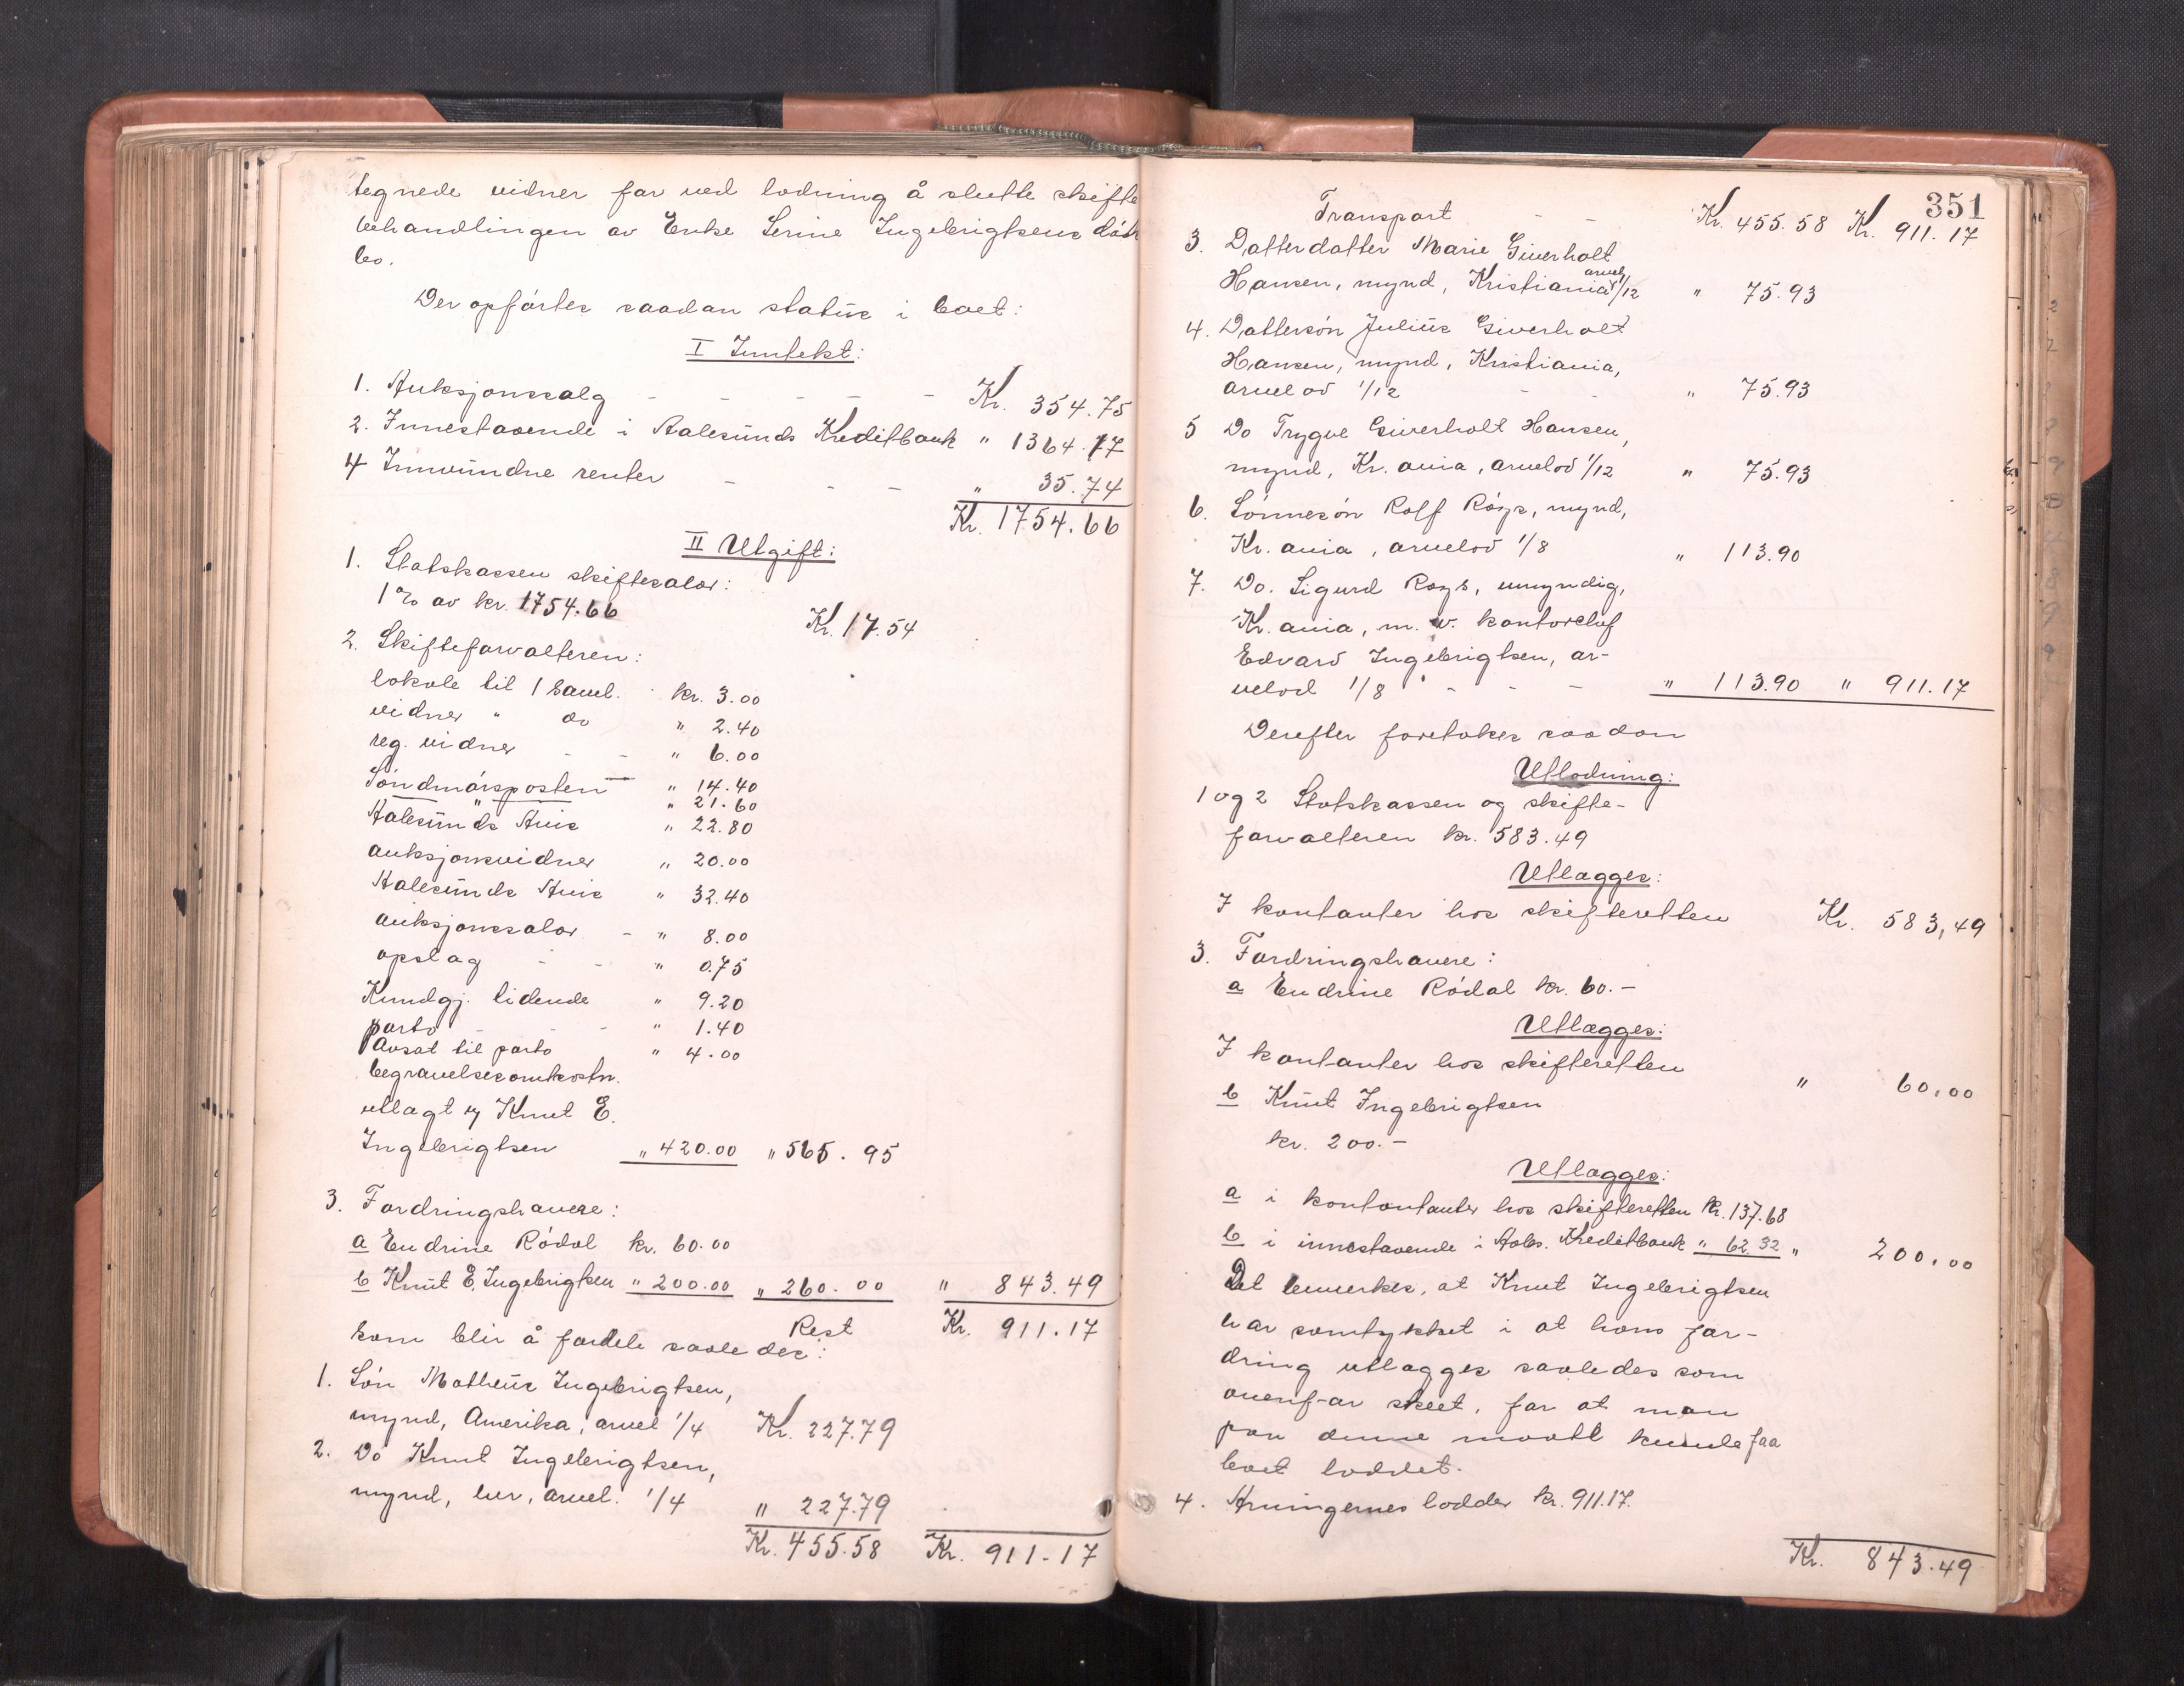 tegnede vidner for ved lodning å slutte skifte
behandlingen av Enke Serine Ingebrigtsens döds
bo.
Der opförtes saadan status i boet:
I Inntekt:
1. Auksjonssalg - - - - - Kr. 354.75
2. Innestaaende i Aalesunds Kreditbank " 1364.17
4 Innvundne renter - - - " 35.74
Kr. 1754.66
II Utgift:
1. Statskassen skiftesalær:
1% av kr. 1754.66 Kr. 17.54
2. Skifteforvalteren:
lokale til 1 saml. kr. 3.00
vidner " do " 2.40
reg. vidner - - " 6.00
Söndmörsposten " 14.40
" " 21.60
Aalesunds Avis " 22.80
auksjonsvidner " 20.00
Aalesunds Avis " 32.40
auksjonssalær - " 8.00
opslag - - " 0.75
Kundgj. tidende " 9.20
porto - - - " 1.40
Avsat til porto " 4.00
begravelsesomkostn.
utlagt av Knut E.
Ingebrigtsen " 420.00 " 565.95
3. Fordringshavere:
a Endrine Rödal kr. 60.00
b Knut E. Ingebrigtsen " 200.00 " 260.00 " 843.49
Rest Kr. 911.17
som blir å fordele saaledes:
1. Sön Matheus Ingebrigtsen,
mynd, Amerika, arvel 1/4 Kr. 227.79
2. Do Knut Ingebrigtsen,
mynd, her, arvel. 1/4 " 227.79
Kr. 455.58 Kr. 911.17
351
Transport - - Kr. 455.58 Kr. 911.17
3. Datterdatter Marie Giverholt
Hansen, mynd, Kristiania arvel 1/12 " 75.93
4. Dattersön Julius Giverholt
Hansen, mynd, Kristiania,
arvelod 1/12 - - " 75.93
5 Do Trygve Giverholt Hansen,
mynd, Kr.ania, arvelod 1/12 " 75.93
6. Sönnesön Rolf Röys, mynd,
Kr.ania, arvelod 1/8 " 113.90
7. Do. Sigurd Roys, umyndig,
Kr.ania, m. v. kontorchef
Edvard Ingebrigtsen, ar-
velod 1/8 - - - " 113.90 " 911.17
Derefter foretokes saadan
Utlodning:
1 og 2 Statskassen og skifte-
forvalteren kr. 583.49
Utlægges:
I kontanter hos skifteretten Kr. 583,49
3. Fordringshavere:
a Endrine Rödal kr. 60.-
Utlægges:
I kontanter hos skifteretten " 60,00
b Knut Ingebrigtsen
kr. 200.-
Utlægges:
a i kontontanter hos skifteretten kr. 137.68
b i innestaaende i Aales. Kreditbank " 62.32 " 200,00
Det bemerkes, at Knut Ingebrigtsen
har samtykket i at hans for-
dring utlægges saaledes som
ovenf-or skeet, for at man
paa denne maate kunde faa
boet loddet.
4. Arvingernes lodder kr. 911.17.
Kr. 843.49